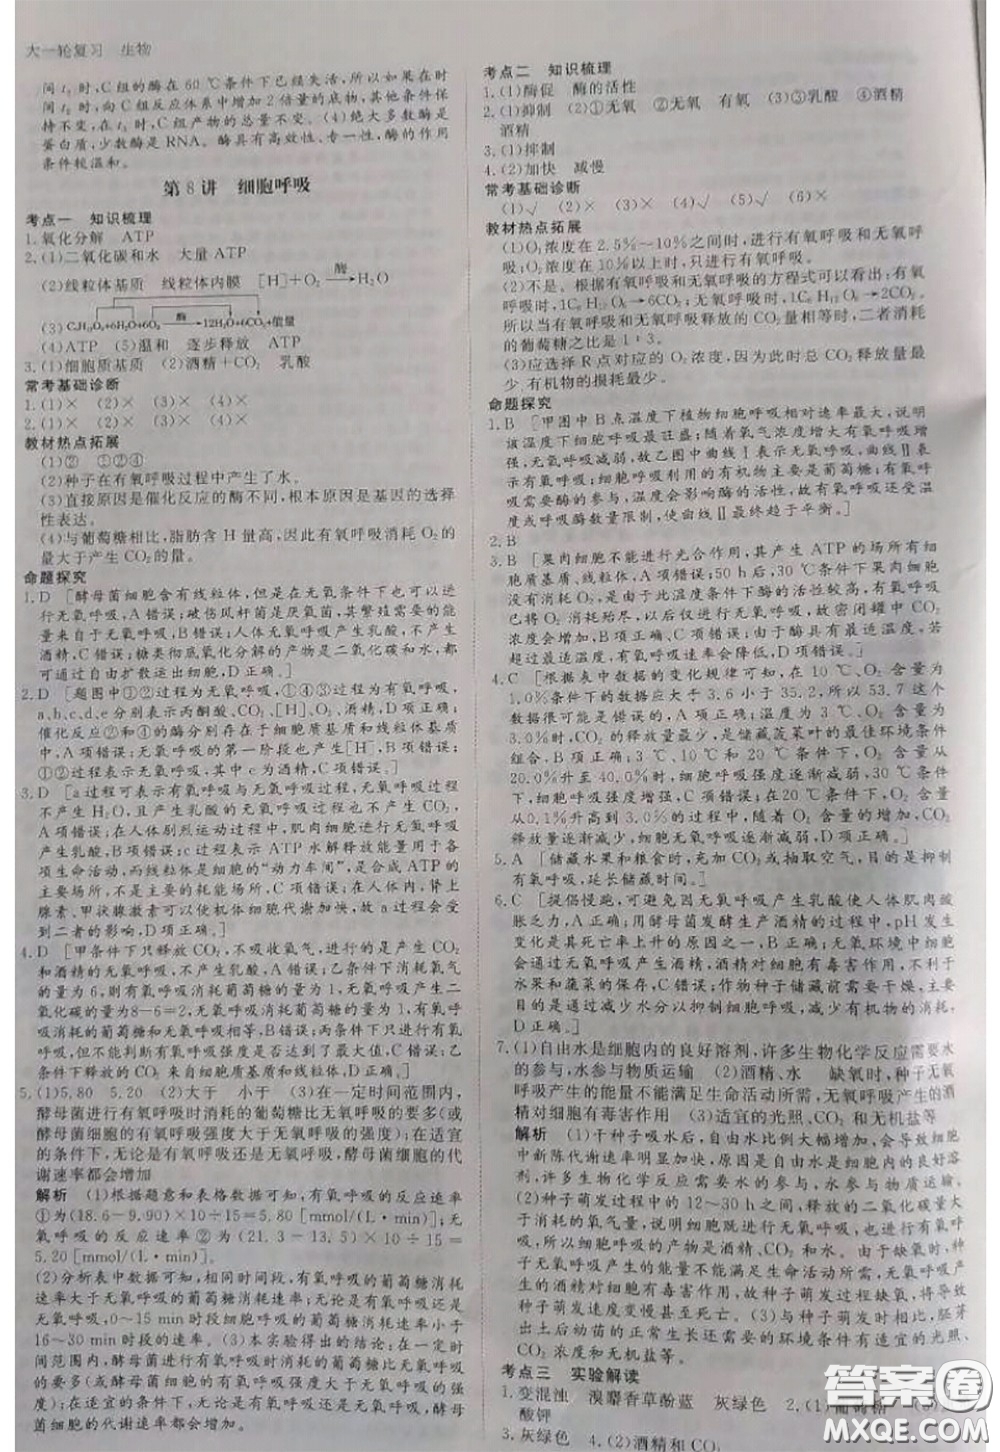 大一轮复习　生物
间t₃时,C组的酶在60 ℃条件下已经失活,所以如果在时
间t₂时,向C组反应体系中增加2倍量的底物,其他条件保
持不变,在t₃时,C组产物的总量不变。(4)绝大多数酶是
蛋白质,少数酶是RNA。酶具有高效性、专一性,酶的作用
条件较温和。
第8讲　细胞呼吸
考点一　知识梳理
1.氧化分解　ATP
2.(1)二氧化碳和水　大量ATP
(2)线粒体基质　线粒体内膜　[H]+O₂ 酶→H₂O
(3)C₆H₁₂O₆+6H₂O+6O₂ 酶→12H₂O+6CO₂+能量
(4)ATP　(5)温和　逐步释放　ATP
3.(1)细胞质基质　(2)酒精+CO₂　乳酸
常考基础诊断
1.(1)×　(2)×　(3)×　(4)×
2.(1)×　(2)×　(3)×　(4)×
教材热点拓展
(1)②　①③④
(2)种子在有氧呼吸过程中产生了水。
(3)直接原因是催化反应的酶不同,根本原因是基因的选择
性表达。
(4)与葡萄糖相比,脂肪含H量高,因此有氧呼吸消耗O₂的
量大于产生CO₂的量。
命题探究
1.D　[酵母菌细胞含有线粒体,但是在无氧条件下只进行
无氧呼吸,A错误;破伤风杆菌是厌氧菌,其繁殖需要的能
量来自于无氧呼吸,B错误;人体无氧呼吸产生乳酸,不产
生酒精,C错误;糖类彻底氧化分解的产物是二氧化碳和水,
都可通过自由扩散运出细胞,D正确。]
2.D　[题图中①②过程为无氧呼吸,①③④过程为有氧呼吸,
a、b、c、d、e分别表示丙酮酸、CO₂、[H]、O₂、酒精,D项正确;
催化反应②和④的酶分别存在于细胞质基质和线粒体基质
中,A项错误;无氧呼吸的第一阶段也产生[H],B项错误;
①②过程为无氧呼吸,其中e为酒精,C项错误。]
3.D　[a过程可表示有氧呼吸与无氧呼吸过程,无氧呼吸过程
不产生H₂O,且产生乳酸的无氧呼吸过程也不产生CO₂,
A项错误;在人体剧烈运动过程中,肌肉细胞进行无氧呼吸
产生乳酸,B项错误;c过程表示ATP水解释放能量用于各
项生命活动,而线粒体是细胞的“动力车间”,是合成ATP的
主要场所,不是主要的耗能场所,C项错误;在人体中,肾上
腺素、甲状腺激素可以使细胞代谢加快,故a、c过程都会受到
二者的影响,D项正确。]
4.D　[甲条件下只释放CO₂,不吸收氧气,进行的是产生CO₂
和酒精的无氧呼吸,A项错误;乙条件下,有氧呼吸消耗氧气
的量为6,则有氧呼吸消耗葡萄糖的量为1,无氧呼吸产生二
氧化碳的量为8-6=2,无氧呼吸消耗葡萄糖的量为1,有氧呼
吸消耗的葡萄糖和无氧呼吸相等,B项错误;两条件下只有氧
气不同,但不能判断有氧呼吸强度是否达到了最大,C项错误;
乙条件下释放的CO₂来自细胞质基质和线粒体,D项正确。]
5.(1)5.80　5.20　(2)大于　小于　(3)在一定时间范围内,
酵母菌进行有氧呼吸时消耗的葡萄糖比无氧呼吸的要多(或
酵母菌细胞的有氧呼吸强度大于无氧呼吸的强度);在适宜
的条件下,无论是有氧呼吸还是无氧呼吸,酵母菌细胞的代
谢速率都会增加
解析　(1)根据题意和表格数据可知,有氧呼吸的反应速率
①为(18.6-9.90)×10÷15=5.80 [mmol/(L·min)],无
氧呼吸的反应速率②为(21.3-13.5)×10÷15=
5.20 [mmol/(L·min)]。
(2)分析表中数据可知,相同时间段,有氧呼吸的葡萄糖消耗
速率大于无氧呼吸;无论是有氧呼吸还是无氧呼吸,葡萄糖
的消耗速率,0～15 min时段的消耗速率小于
16～30 min时段的速率。(3)本实验得出的结论:在一定时
间范围内,酵母菌进行有氧呼吸时消耗的葡萄糖比无氧呼吸
的要多(或酵母菌细胞的有氧呼吸强度大于无氧呼吸的强
度);在适宜的条件下,无论是有氧呼吸还是无氧呼吸,酵母
菌细胞的代谢速率都会增加。
考点二　知识梳理
1.(1)酶促　酶的活性
2.(1)抑制　(2)①无氧　②无氧　有氧　(3)③乳酸　④酒精
酒精
3.(1)抑制
4.(2)加快　减慢
常考基础诊断
(1)√　(2)×　(3)×　(4)√　(5)√　(6)×
教材热点拓展
(1)O₂浓度在2.5%～10%之间时,进行有氧呼吸和无氧呼
吸;O₂浓度在10%以上时,只进行有氧呼吸。
(2)不是。根据有氧呼吸和无氧呼吸的方程式可以看出:有氧
呼吸时,1C₆H₁₂O₆→6CO₂;无氧呼吸时,1C₆H₁₂O₆→2CO₂。
所以当有氧呼吸与无氧呼吸释放的CO₂量相等时,二者消耗
的葡萄糖之比是1∶3。
(3)应选择R点对应的O₂浓度,因为此时总CO₂释放量最
少,有机物的损耗最少。
命题探究
1.B　[甲图中B点温度下植物细胞呼吸相对速率最大,说明
该温度下细胞呼吸最旺盛;随着氧气浓度增加,有氧呼吸增
强,无氧呼吸减弱,故乙图中曲线Ⅰ表示有氧呼吸,曲线Ⅱ
表示无氧呼吸;细胞呼吸利用的有机物主要是葡萄糖;有氧
呼吸需要酶的参与,温度会影响酶的活性,故有氧呼吸还受温
度或呼吸酶数量限制,使曲线Ⅱ最终趋于平衡。]
2.B
3.B　[果肉细胞不能进行光合作用,其产生ATP的场所有细
胞质基质、线粒体,A项错误;50 h后,30 ℃条件下果肉细胞
没有消耗O₂,是由于此温度条件下酶的活性较高,有氧呼吸
已将O₂消耗殆尽,以后仅进行无氧呼吸,故密闭罐中CO₂
浓度会增加,B项正确、C项错误;由于题干中只有3个温度
条件,故温度越高,果肉细胞有氧呼吸速率会降低,D项错误。]
4.C　[根据表中数据的变化规律可知,在10 ℃、O₂含量为
1.0%条件下的数据应大于3.6小于35.2,所以53.7这个
数据可能是错误的,A项正确;温度为3 ℃、O₂含量为
3.0%时,CO₂的释放量最少,是储藏蔬菜叶的最佳环境条
件组合,B项正确;3 ℃、10 ℃和20 ℃条件下,O₂含量从
20.0%升至40.0%时,细胞呼吸强度逐渐减弱,30 ℃条件
下,细胞呼吸强度增强,C项错误;在20 ℃条件下,O₂含量
从0.1%升高到3.0%的过程中,随着O₂含量的增加,CO₂
释放量逐渐减少,细胞无氧呼吸逐渐减弱,D项正确。]
5.A　[储藏水果和粮食时,充加CO₂或抽取空气,目的是抑制
有氧呼吸,延长储藏时间。]
6.C　[提倡慢跑,可避免因无氧呼吸产生乳酸使人体肌肉酸
胀乏力,A正确;利用酵母菌发酵生产酒精的过程中,pH发生
变化是其死亡率上升的原因之一,B正确;无氧环境中细胞
会通过无氧呼吸产生酒精,酒精对细胞有毒害作用,不利于
水果和蔬菜的保存,C错误;作物种子储藏前需要干燥,主要
目的是通过减少水分以抑制细胞呼吸,减少有机物的消耗,
D正确。]
7.(1)自由水是细胞内的良好溶剂,许多生物化学反应需要水
的参与,水参与物质运输　(2)酒精、水　种子无氧
呼吸产生的能量不能满足生命活动所需,无氧呼吸产生的酒
精对细胞有毒害作用　(3)适宜的光照、CO₂和无机盐等
解析　(1)干种子吸水后,自由水比例大幅增加,会导致细胞
中新陈代谢速率明显加快,原因是自由水是细胞内的良好溶剂,
许多生物化学反应需要水的参与,水参与物质运输。
(2)种子萌发过程中的12～30 h之间,释放的CO₂量大于
吸收的氧气量,说明
氧呼吸产生能量不能满足生命活动所需,无氧呼吸产生的
酒精对细胞有毒害作用,因此种子萌发过程缺氧,会导致种
子萌发速度变慢甚至死亡。(3)与种子萌发时相比,胚芽
出土后幼苗的正常生长还需要的环境条件有适宜的光照、
CO₂浓度和无机盐等。
考点三　实验解读
1.变混浊　溴麝香草酚蓝　灰绿色　2.(1)葡萄糖
酸钾
3.灰绿色　4.(2)酒精和CO₂
答案圈
MXQE.COM